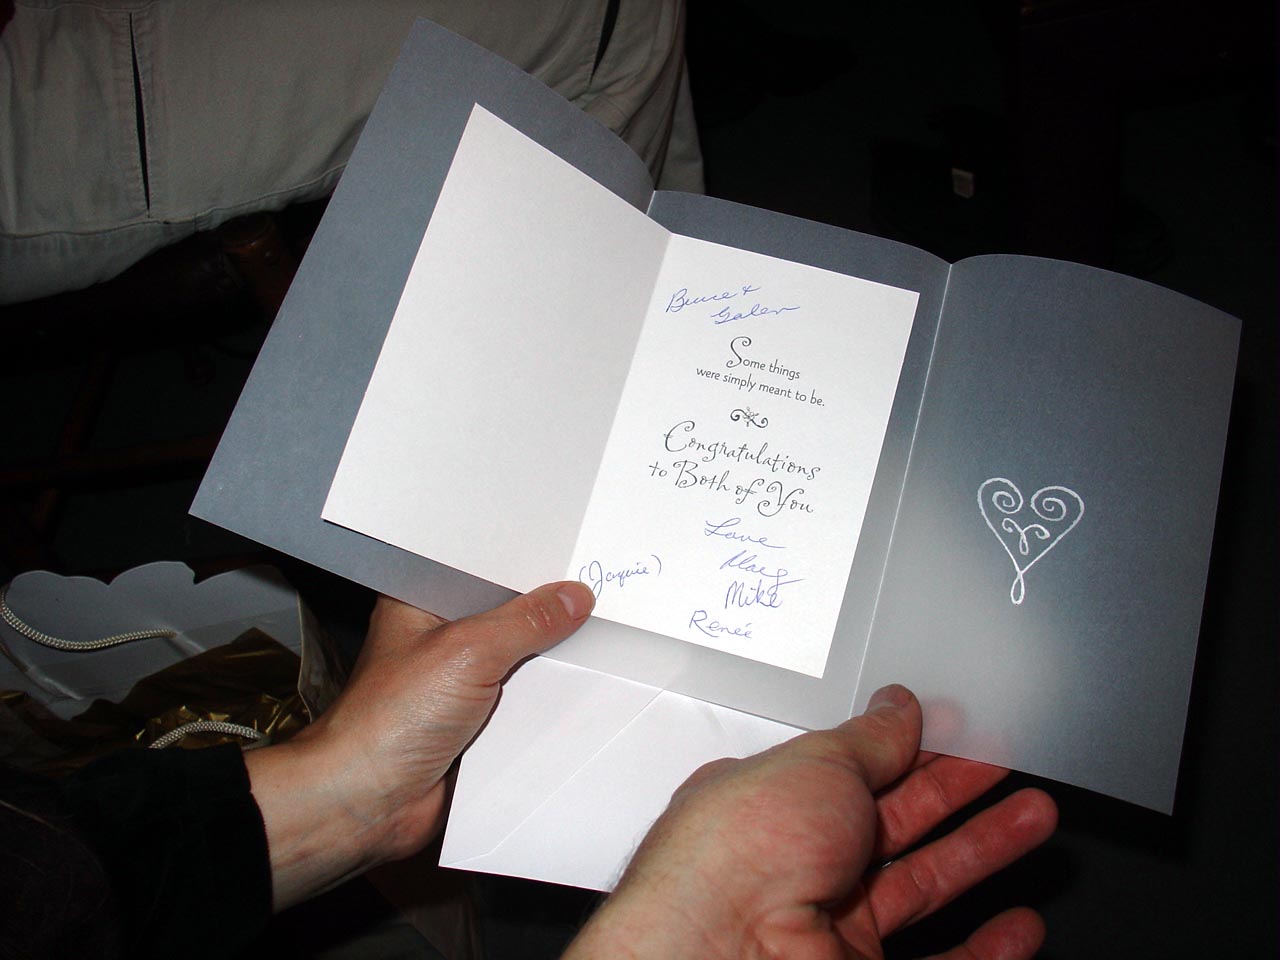 Bruce +
Galen
Some things
were simply meant to be.
Congratulations
to Both of You
Love
Marg
(Jaquie)
Mike
Renée